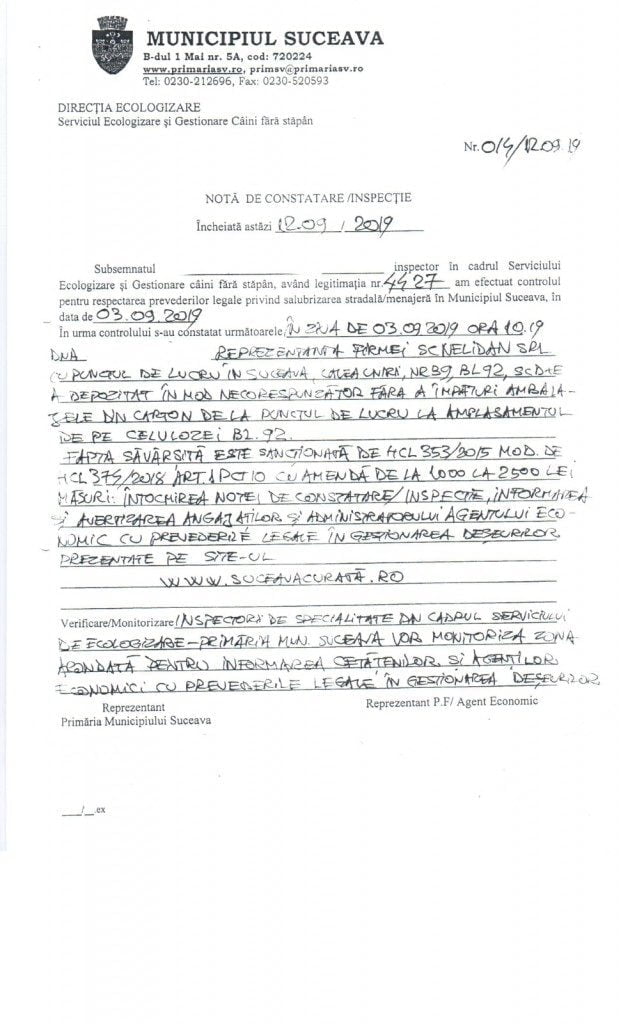 MUNICIPIUL SUCEAVA
B-dul 1 Mai nr. 5A, cod: 720224
www.primariasv.ro, primsv@primariasv.ro
Tel: 0230-212696, Fax: 0230-520593
DIRECȚIA ECOLOGIZARE
Serviciul Ecologizare și Gestionare Câini fără stăpân
Nr. 014/12.09.19
NOTĂ DE CONSTATARE /INSPECȚIE
Încheiată astăzi 12.09 / 2019
Subsemnatul inspector în cadrul Serviciului
Ecologizare și Gestionare câini fără stăpân, având legitimația nr. 4427 am efectuat controlul
pentru respectarea prevederilor legale privind salubrizarea stradală/menajeră în Municipiul Suceava, în
data de 03.09.2019
În urma controlului s-au constatat următoarele, ÎN ZIUA DE 03.09.2019 ORA 10.19
DNA REPREZENTANTA FIRMEI SC NELIDAN SRL
CU PUNCTUL DE LUCRU ÎN SUCEAVA, CALEA UNIRII, NR 39, BL 92, SC D+E
A DEPOZITAT ÎN MOD NECORESPUNZĂTOR FĂRA A ÎMPĂTURI AMBALA-
JELE DIN CARTON DE LA PUNCTUL DE LUCRU LA AMPLASAMENTUL
DE PE CELULOZEI BL. 92.
FAPTA SĂVÂRSITĂ ESTE SANCTIONATĂ DE HCL 353/2015 MOD. DE
HCL 375/2018 ART.1 PCT 10 CU AMENDĂ DE LA 1000 LA 2500 LEI
MĂSURI: INTOCMIREA NOTEI DE CONSTATARE/ INSPECTIE, INFORMAREA
ȘI AVERTIZAREA ANGAJAȚILOR ȘI ADMINISTRATORULUI AGENTULUI ECO-
NOMIC CU PREVEDERILE LEGALE ÎN GESTIONAREA DEȘEURILOR
PREZENTATE PE SITE-UL
WWW.SUCEAVACURATĂ.RO
Verificare/Monitorizare/ INSPECTORII DE SPECIALITATE DIN CADRUL SERVICIULUI
DE ECOLOGIZARE-PRIMĂRIA MUN. SUCEAVA VOR MONITORIZA ZONA
ARONDATĂ PENTRU INFORMAREA CETĂȚENILOR ȘI AGENȚILOR
ECONOMICI CU PREVEDERILE LEGALE ÎN GESTIONAREA DEȘEURILOR
Reprezentant
Primăria Municipiului Suceava
Reprezentant P.F/ Agent Economic
___/__.ex